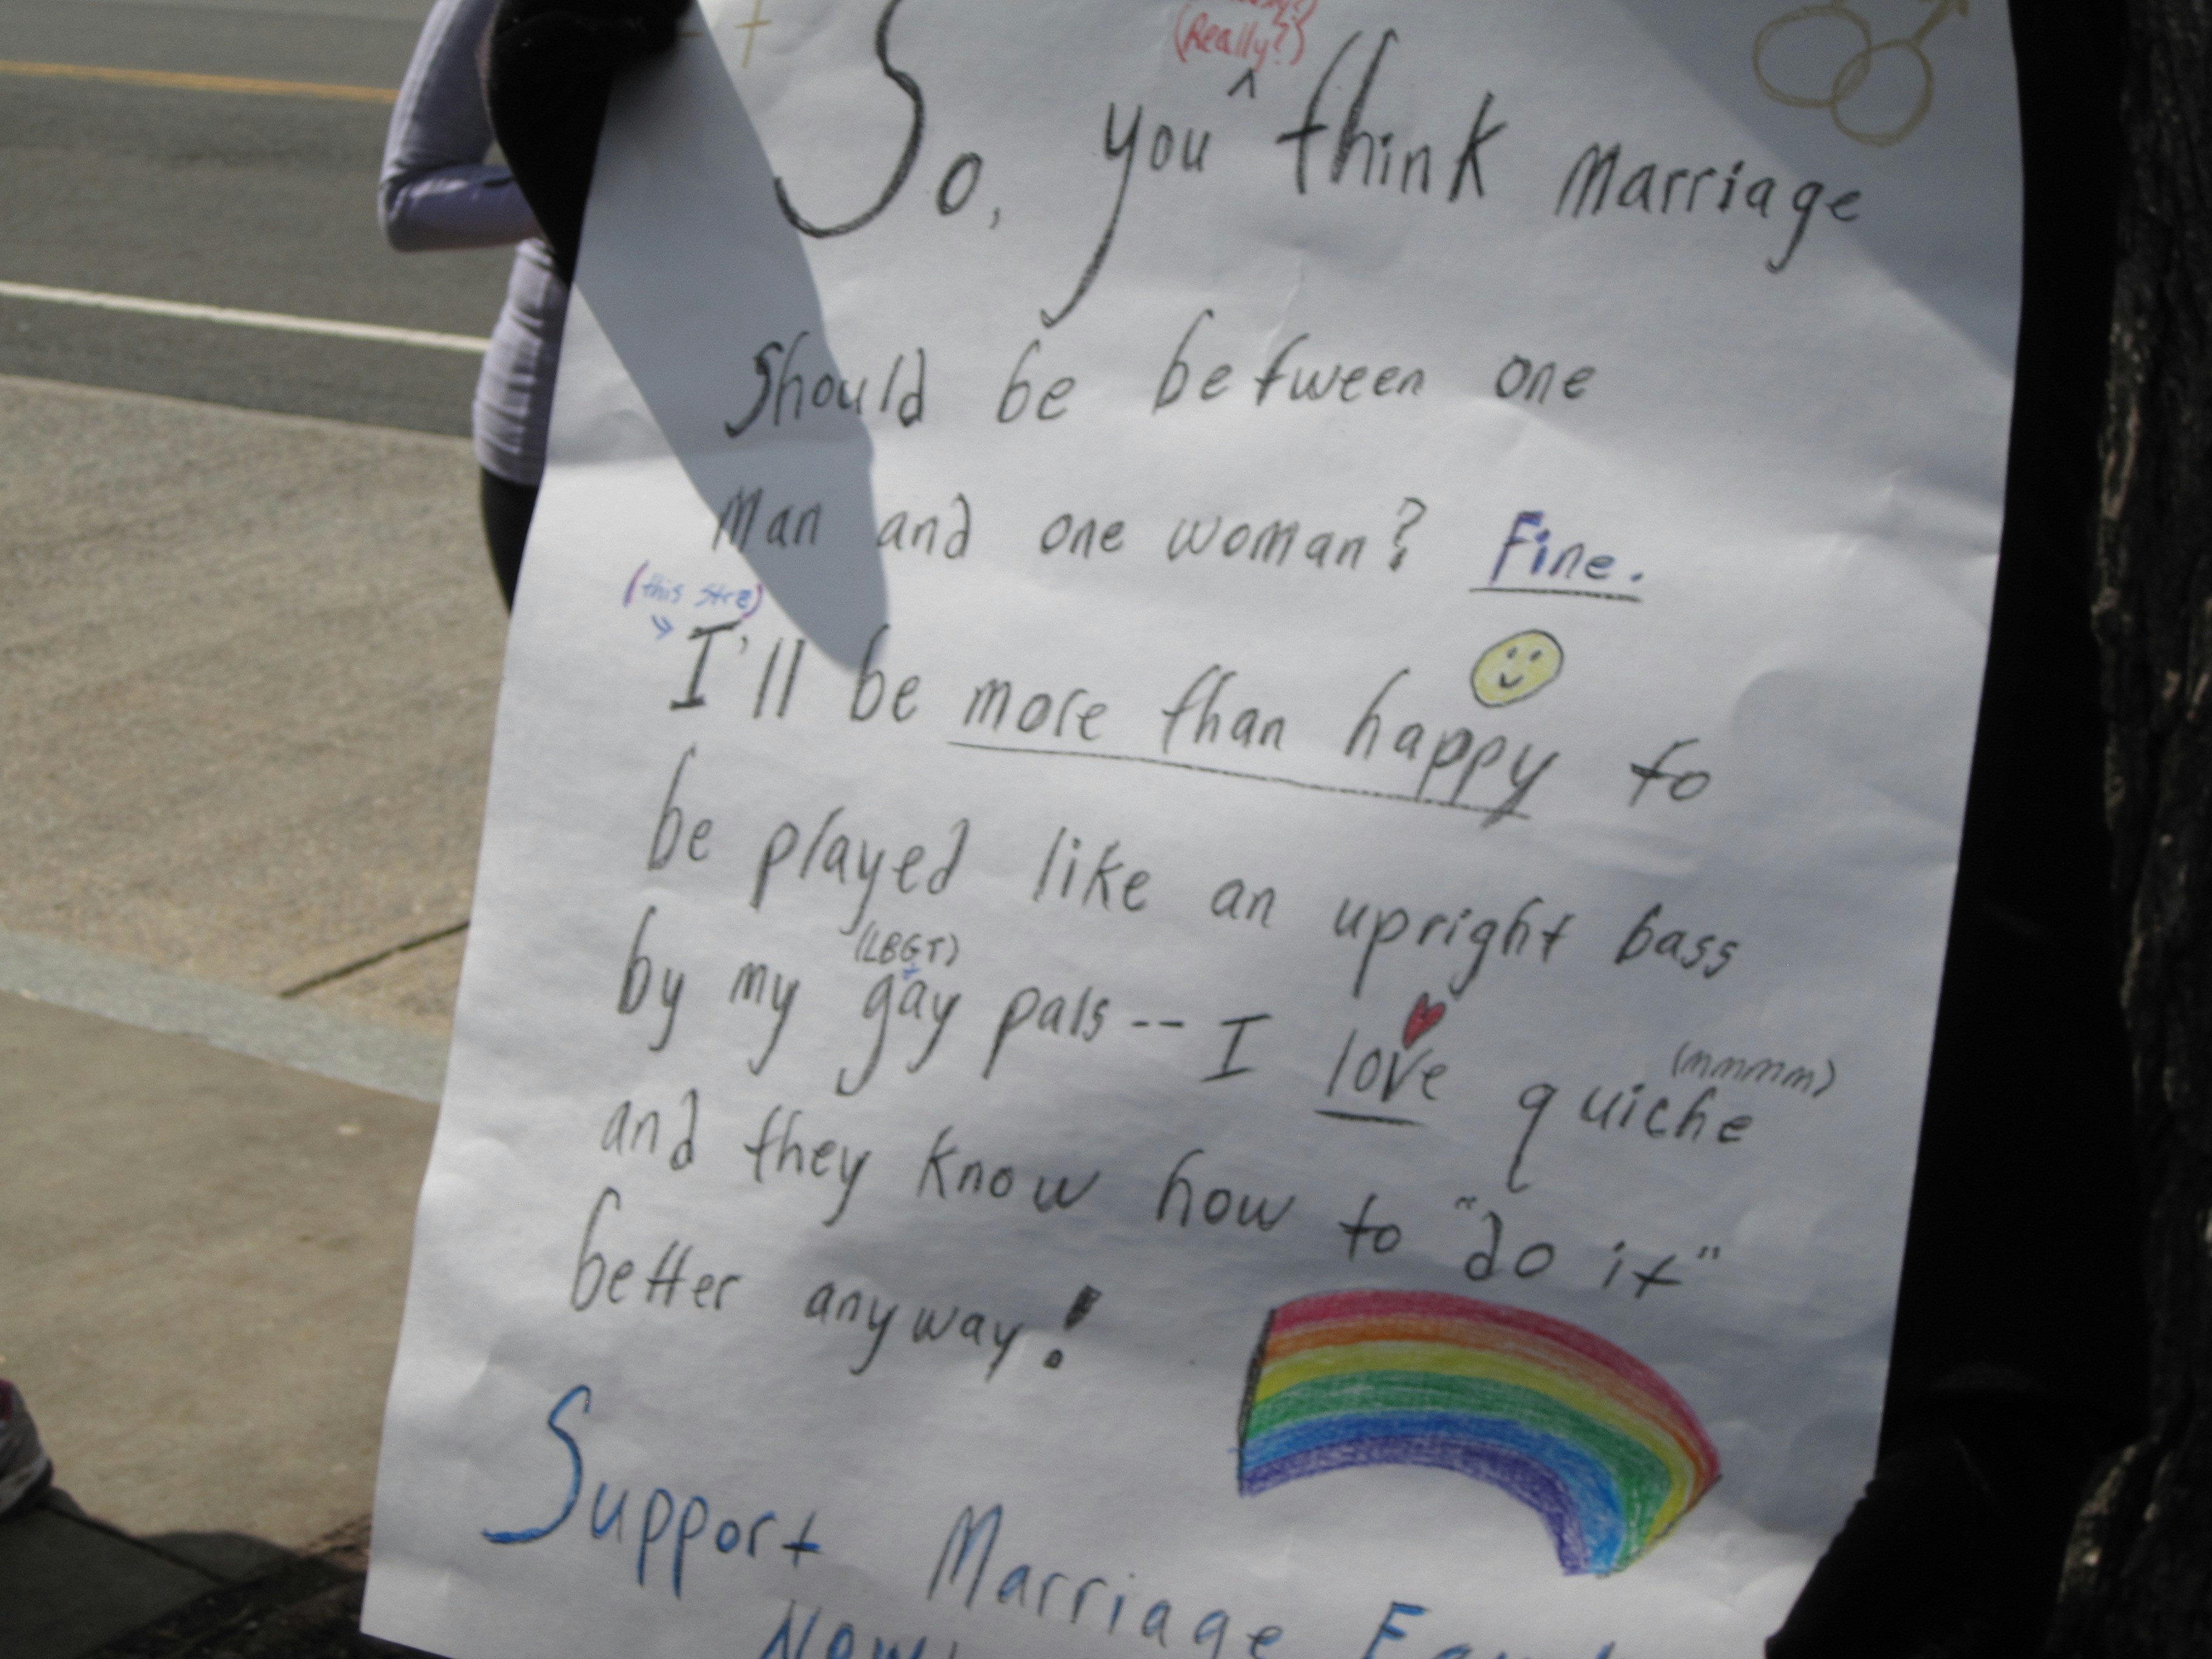 (Really?)
So, you ^ think Marriage
Should be between one
Man and one woman? Fine.
(this str8)
I'll be more than happy to
be played like an upright bass
(LBGT)
by my gay pals -- I love quiche
(mmmm)
and they know how to "do it"
better anyway!
Support Marriage
Now!